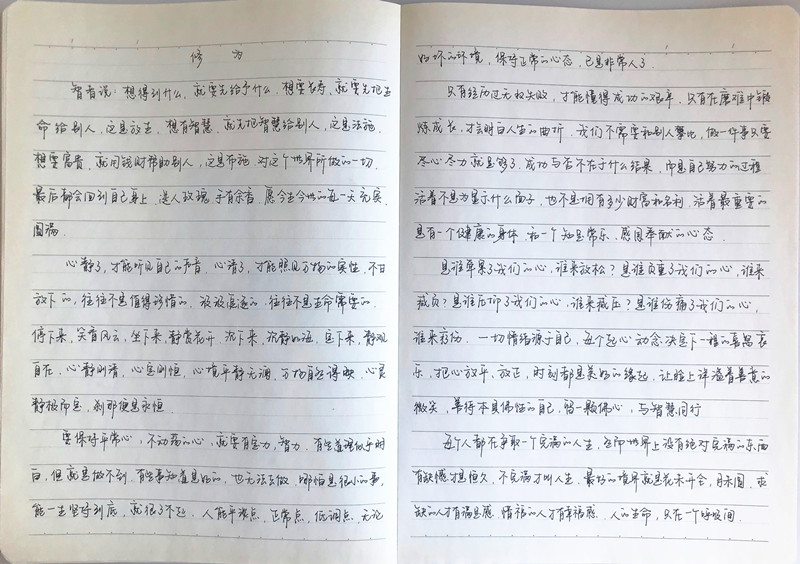 修 为
智者说：想得到什么，就要先给予什么。想要长寿，就要先把生
命给别人，这是放生，想有智慧，就先把智慧给别人，这是法施，
想要富贵，就用钱财帮助别人，这是布施。对这个世界所做的一切，
最后都会回到自己身上，送人玫瑰，手有余香。愿今生今世的每一天充实
圆满。
心静了，才能听见自己的声音，心清了，才能照见万物的实性，不甘
放下的，往往不是值得珍惜的，汲汲追逐的，往往不是生命需要的。
停下来，笑看风云，坐下来，静赏花开，沉下来，沉静如海，定下来，静观
自在，心静则清，心宽则恒，心境平静无澜，万物自然得映，心灵
静极而定，刹那便是永恒。
要保持平常心，不动荡的心，就要有定力，智力。有些道理似乎明
白，但就是做不到，有些事知道是好的，也无法去做，哪怕是很小的事，
能一生坚持到底，就很了不起。人能平淡点，正常点，低调点，无论
好坏的环境，保持正常的心态，已是非常人了。
只有经历过无数失败，才能懂得成功的艰辛，只有在磨难中锻
炼成长，才会明白人生的曲折。我们不需要和别人攀比，做一件事只要
尽心尽力就足够了，成功与否不在于什么结果，而是自己努力的过程
活着不是为显示什么面子，也不是拥有多少财富和名利，活着最重要的
是有一个健康的身体 和一个知足常乐、感恩奉献的心态。
是谁牵累了我们的心，谁来放松？是谁负重了我们的心，谁来
减负？是谁压抑了我们的心，谁来减压？是谁伤痛了我们的心，
谁来疗伤。一切情绪源于自己，每个起心动念决定下一程的喜怒哀
乐，把心放平，放正，时刻都是美好的缘起，让脸上洋溢着善意的
微笑，善待本具佛性的自己，留一颗佛心，与智慧同行
每个人都在争取一个完满的人生，然即世界上没有绝对完满的东西
有缺憾才是恒久，不完满才叫人生，最好的境界就是花未开全，月未圆，求
缺的人才有满足感 惜福的人才有幸福感。人的生命，只在一个呼吸间。